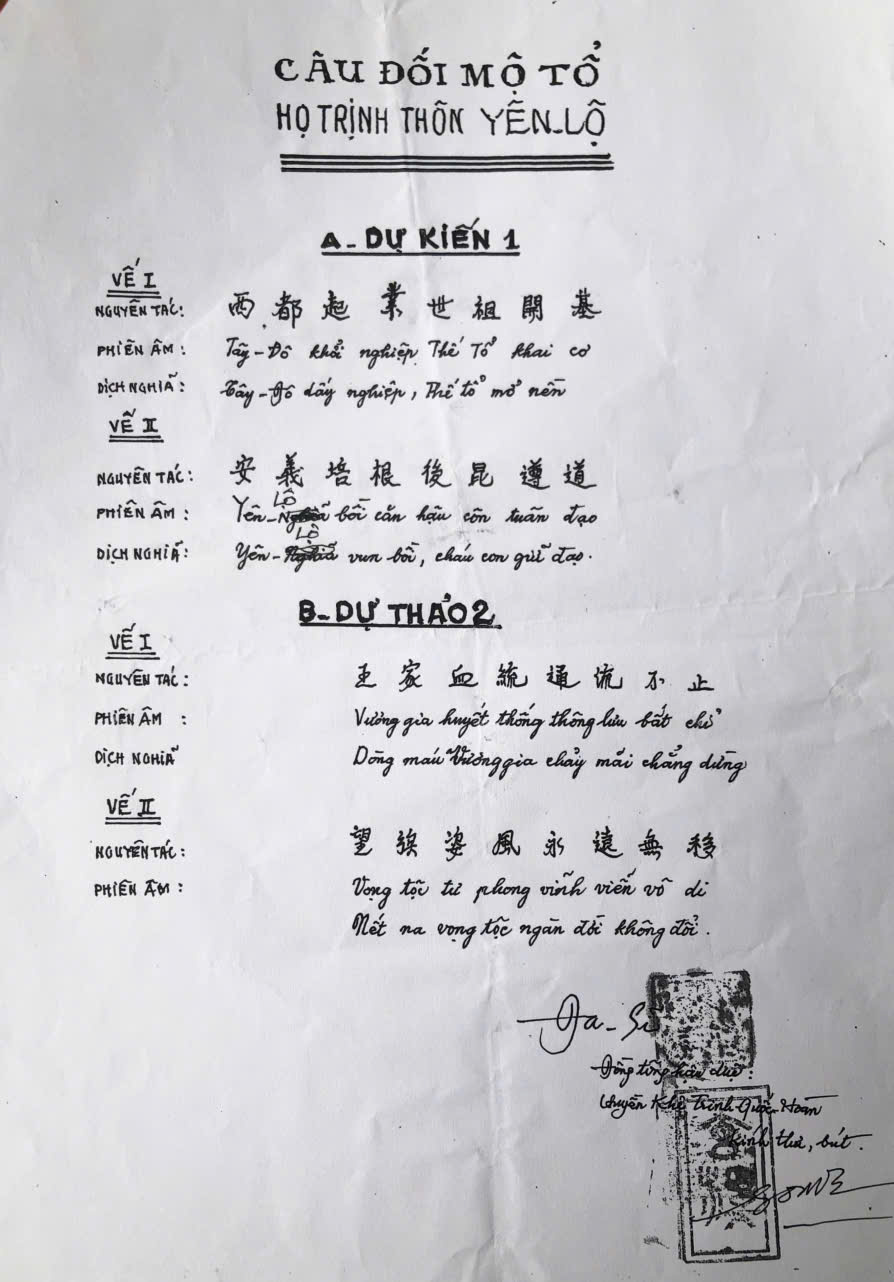 CÂU ĐỐI MỘ TỔ
HỌ TRỊNH THÔN YÊN_LỘ
A_DỰ KIẾN 1
VẾ I
NGUYÊN TÁC: 西都起業世祖開基
PHIÊN ÂM: Tây-Đô khởi nghiệp, Thế Tổ khai cơ
DỊCH NGHĨA: Tây-Đô dấy nghiệp, Thế tổ mở nền
VẾ II
NGUYÊN TÁC: 安義培根後昆遵道
PHIÊN ÂM: Yên-Lộ bồi căn hậu côn tuân đạo
DỊCH NGHĨA: Yên-Lộ vun bồi, cháu con giữ đạo.
B_DỰ THẢO 2
VẾ I
NGUYÊN TÁC: 王家血統通流不止
PHIÊN ÂM: Vương gia huyết thống thông lưu bất chỉ
DỊCH NGHĨA Dòng máu Vương gia chảy mãi chẳng dừng
VẾ II
NGUYÊN TÁC: 望族姿風永遠無移
PHIÊN ÂM: Vọng tộc tư phong vĩnh viễn vô di
Nết na vọng tộc ngàn đời không đổi.
Đa-Sĩ
Đồng tông hậu duệ:
Khê Trịnh Quốc-Hoàn
kính thư, bút.